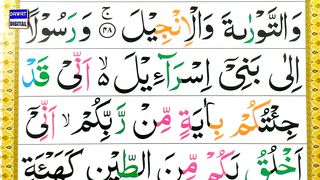 DAWAT
DIGITAL
وَالتَّوۡرٰىةَ وَالۡاِنۡجِيۡلَ ۚ ﴿۴۸﴾ وَرَسُوۡلًا
اِلٰى بَنِىۡۤ اِسۡرَآءِيۡلَ ۙ۬ اَنِّىۡ قَدۡ
جِئۡتُكُمۡ بِاٰيَةٍ مِّنۡ رَّبِّكُمۡ ۙ اَنِّىۡۤ
اَخۡلُقُ لَكُمۡ مِّنَ الطِّيۡنِ كَهَيْـَٔةِ